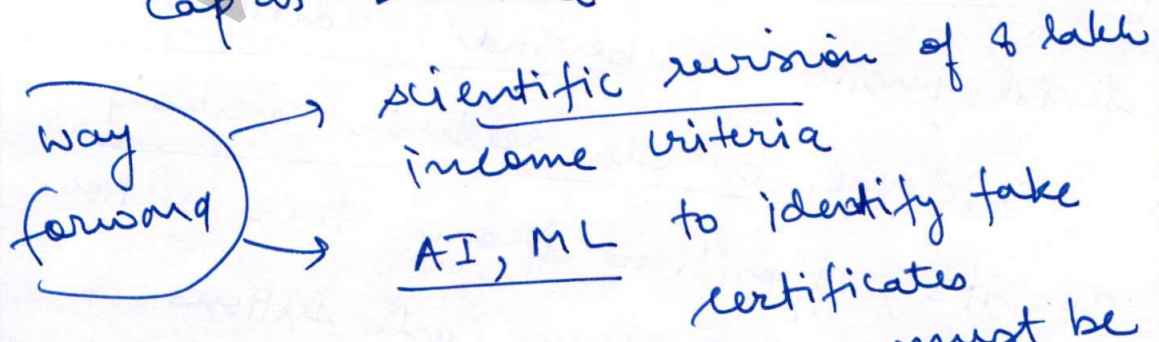 way
forward
scientific revision of 8 lakh
income criteria
AI, ML to identify fake
certificates
must be